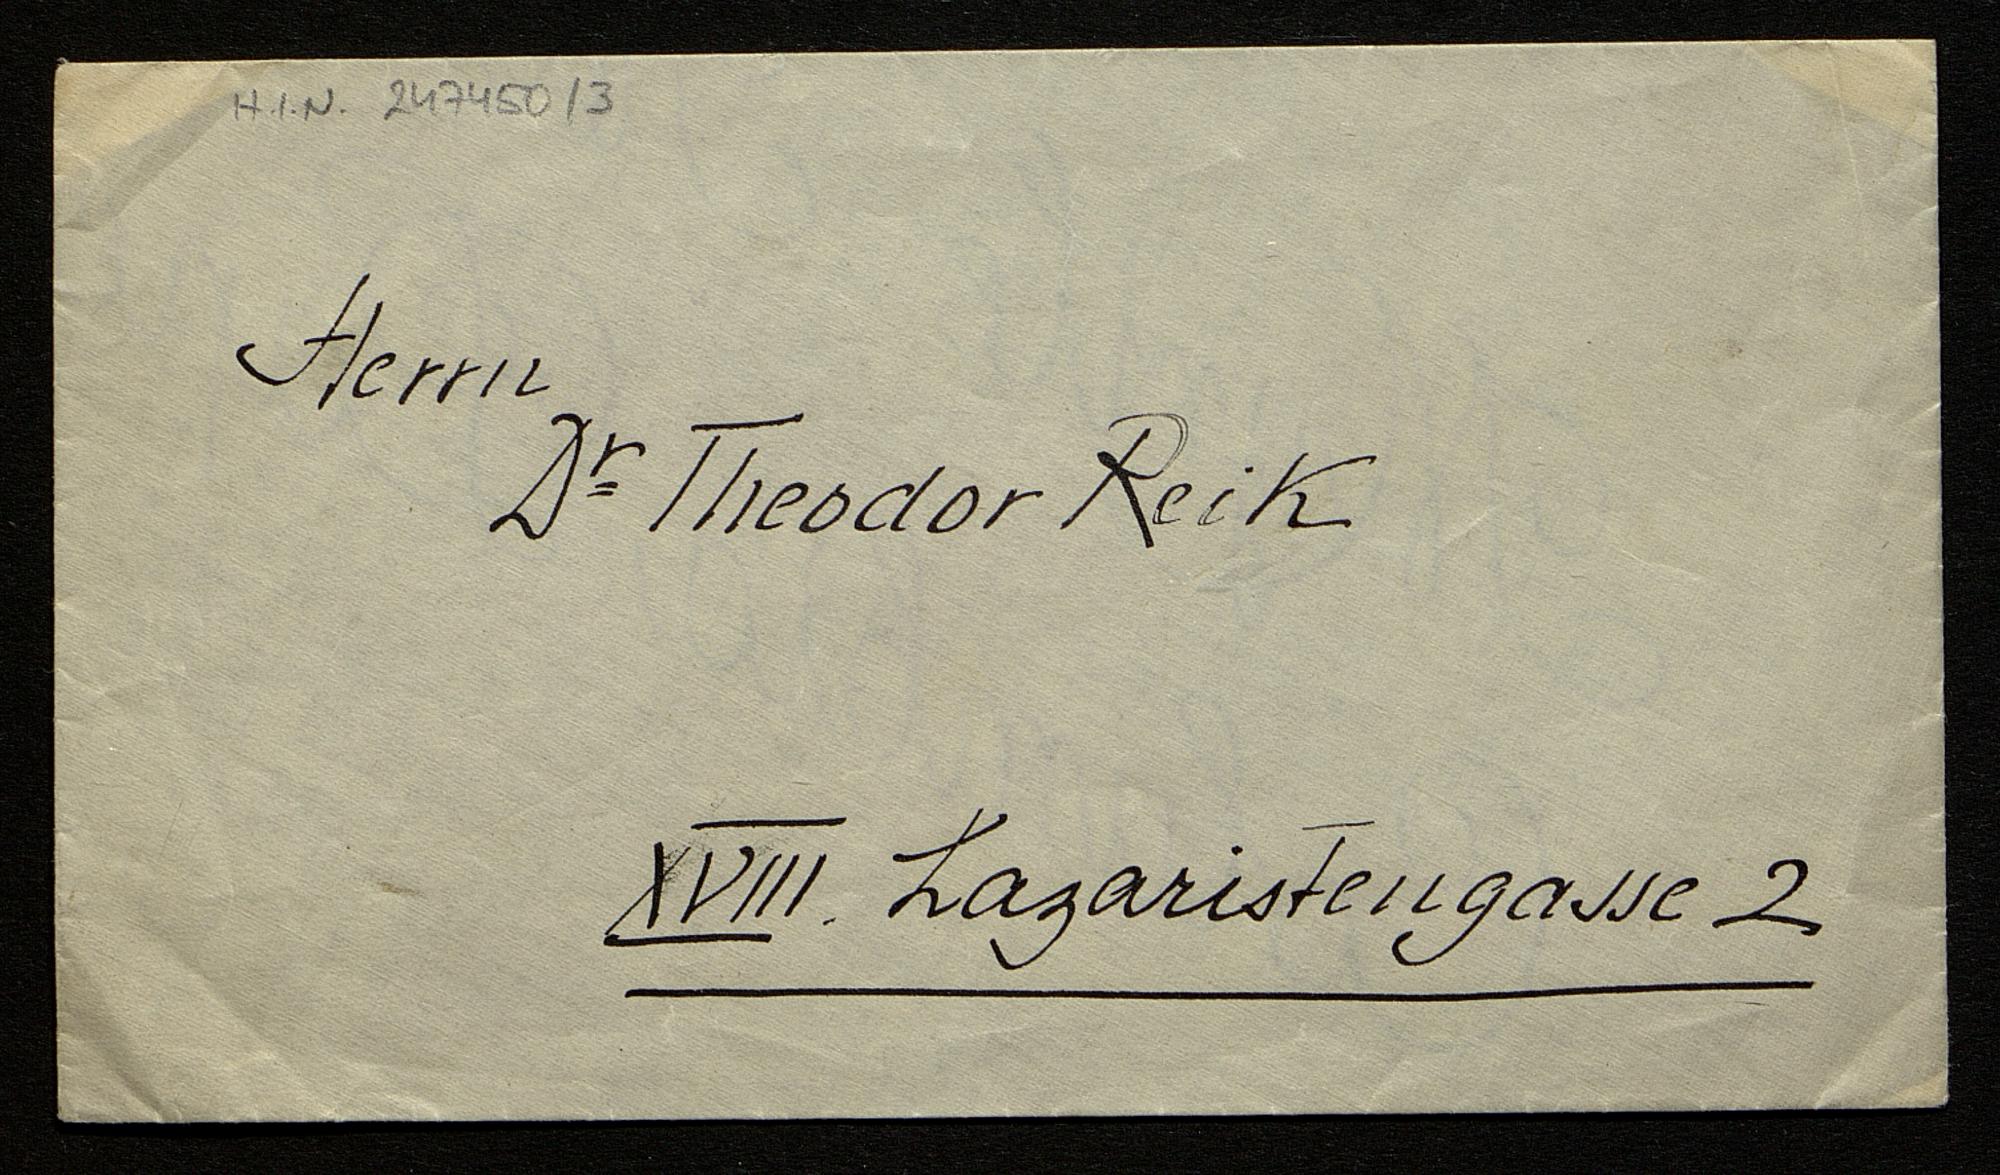 H.I.N. 247450/3
Herrn
Dr Theodor Reik
XVIII. Lazaristengasse 2